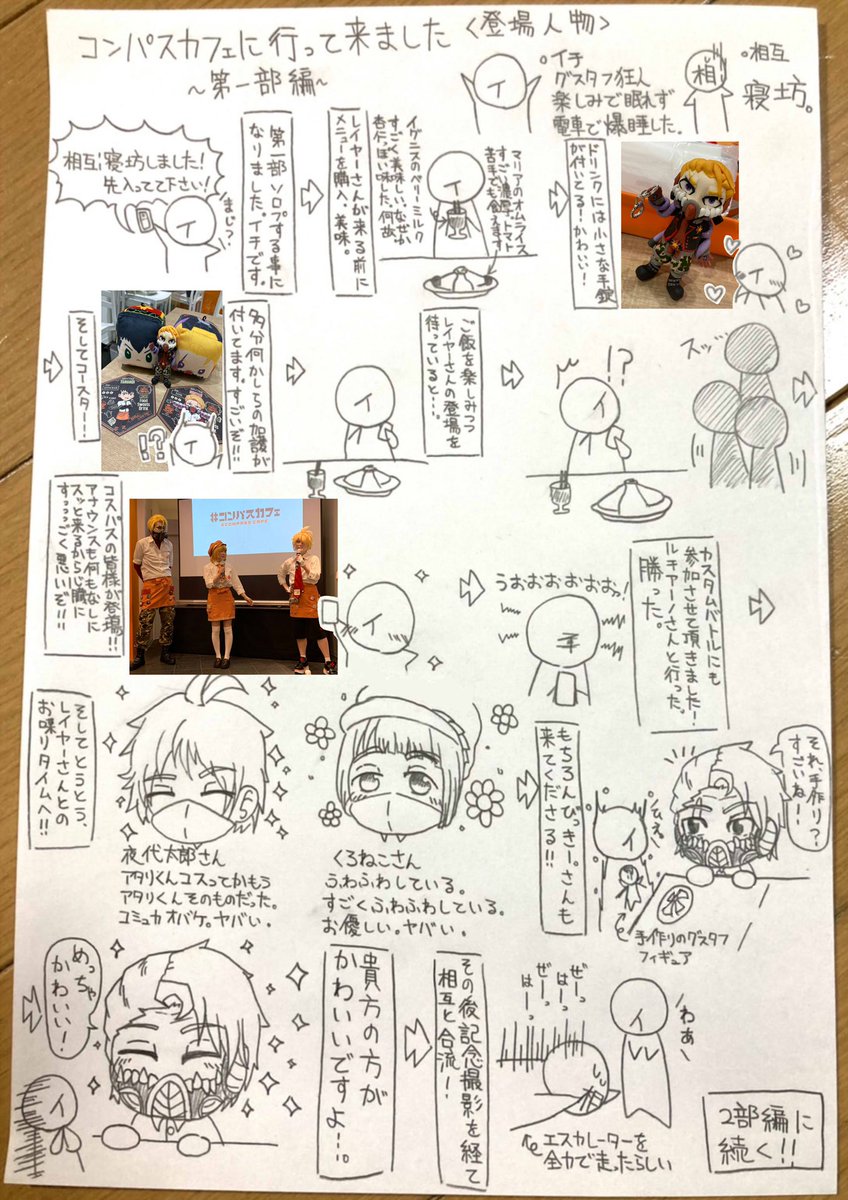 コンパスカフェに行って来ました
~第一部編~
<登場人物>
イ
○イチ
グスタフ狂人
楽しみで眠れず
電車で爆睡した。
相
○相互
寝坊。
相互寝坊しました!
先入ってて下さい!
イ
まじ?
第一部ソロプする事に
なりました。イチです。
レイヤーさんが来る前に
メニューを購入。美味。
イグニスのベリーミルク
すごく美味しい。なぜか
杏仁っぽい味した。何故
イ
マリアのオムライス
すっごい濃厚。トマト
苦手でも飲えます
ドリンクには小さな手錠
が付いてる!かわいい!
イ
そしてコースター!!
!?
イ
多分何かしらの加護が
付いてます。すごいぞ!!
イ
ご飯を楽しみつつ
レイヤーさんの登場を
待っていると…。
!?
イ
スッ…
コスパスの皆様が登場!!
アナウンスも何もなしに
スッと来るから心臓に
すっっっごく悪いぞ!!
#コンパスカフェ
イ
うおおおおおおっ!
カスタムバトルにも
参加させて頂きました!
ルチアーノさんと行った。
勝った。
そしてとうとう、
レイヤーさんとの
お喋りタイムへ!!
夜代太郎さん
アタリくんコスってかもう
アタリくんそのものだった。
コミュカオバケ。ヤバい。
くろねこさん
ふわふわしている。
すごくふわふわしている。
お優しい。ヤバい。
もちろんびっきー。さんも
来てくださる!!
ひえ
イ
それ、手作り?
すごいね!!
手作りのグスタフ
フィギュア
めっちゃ
かわいい!
イ
貴方の方が
かわいいですよ…。
その後記念撮影を経て
相互と合流!
ぜーっ
はーっ
ぜーっ
はーっ
相
イ
わぁ
エスカレーターを
全力で走ったらしい
2部編に
続く!!